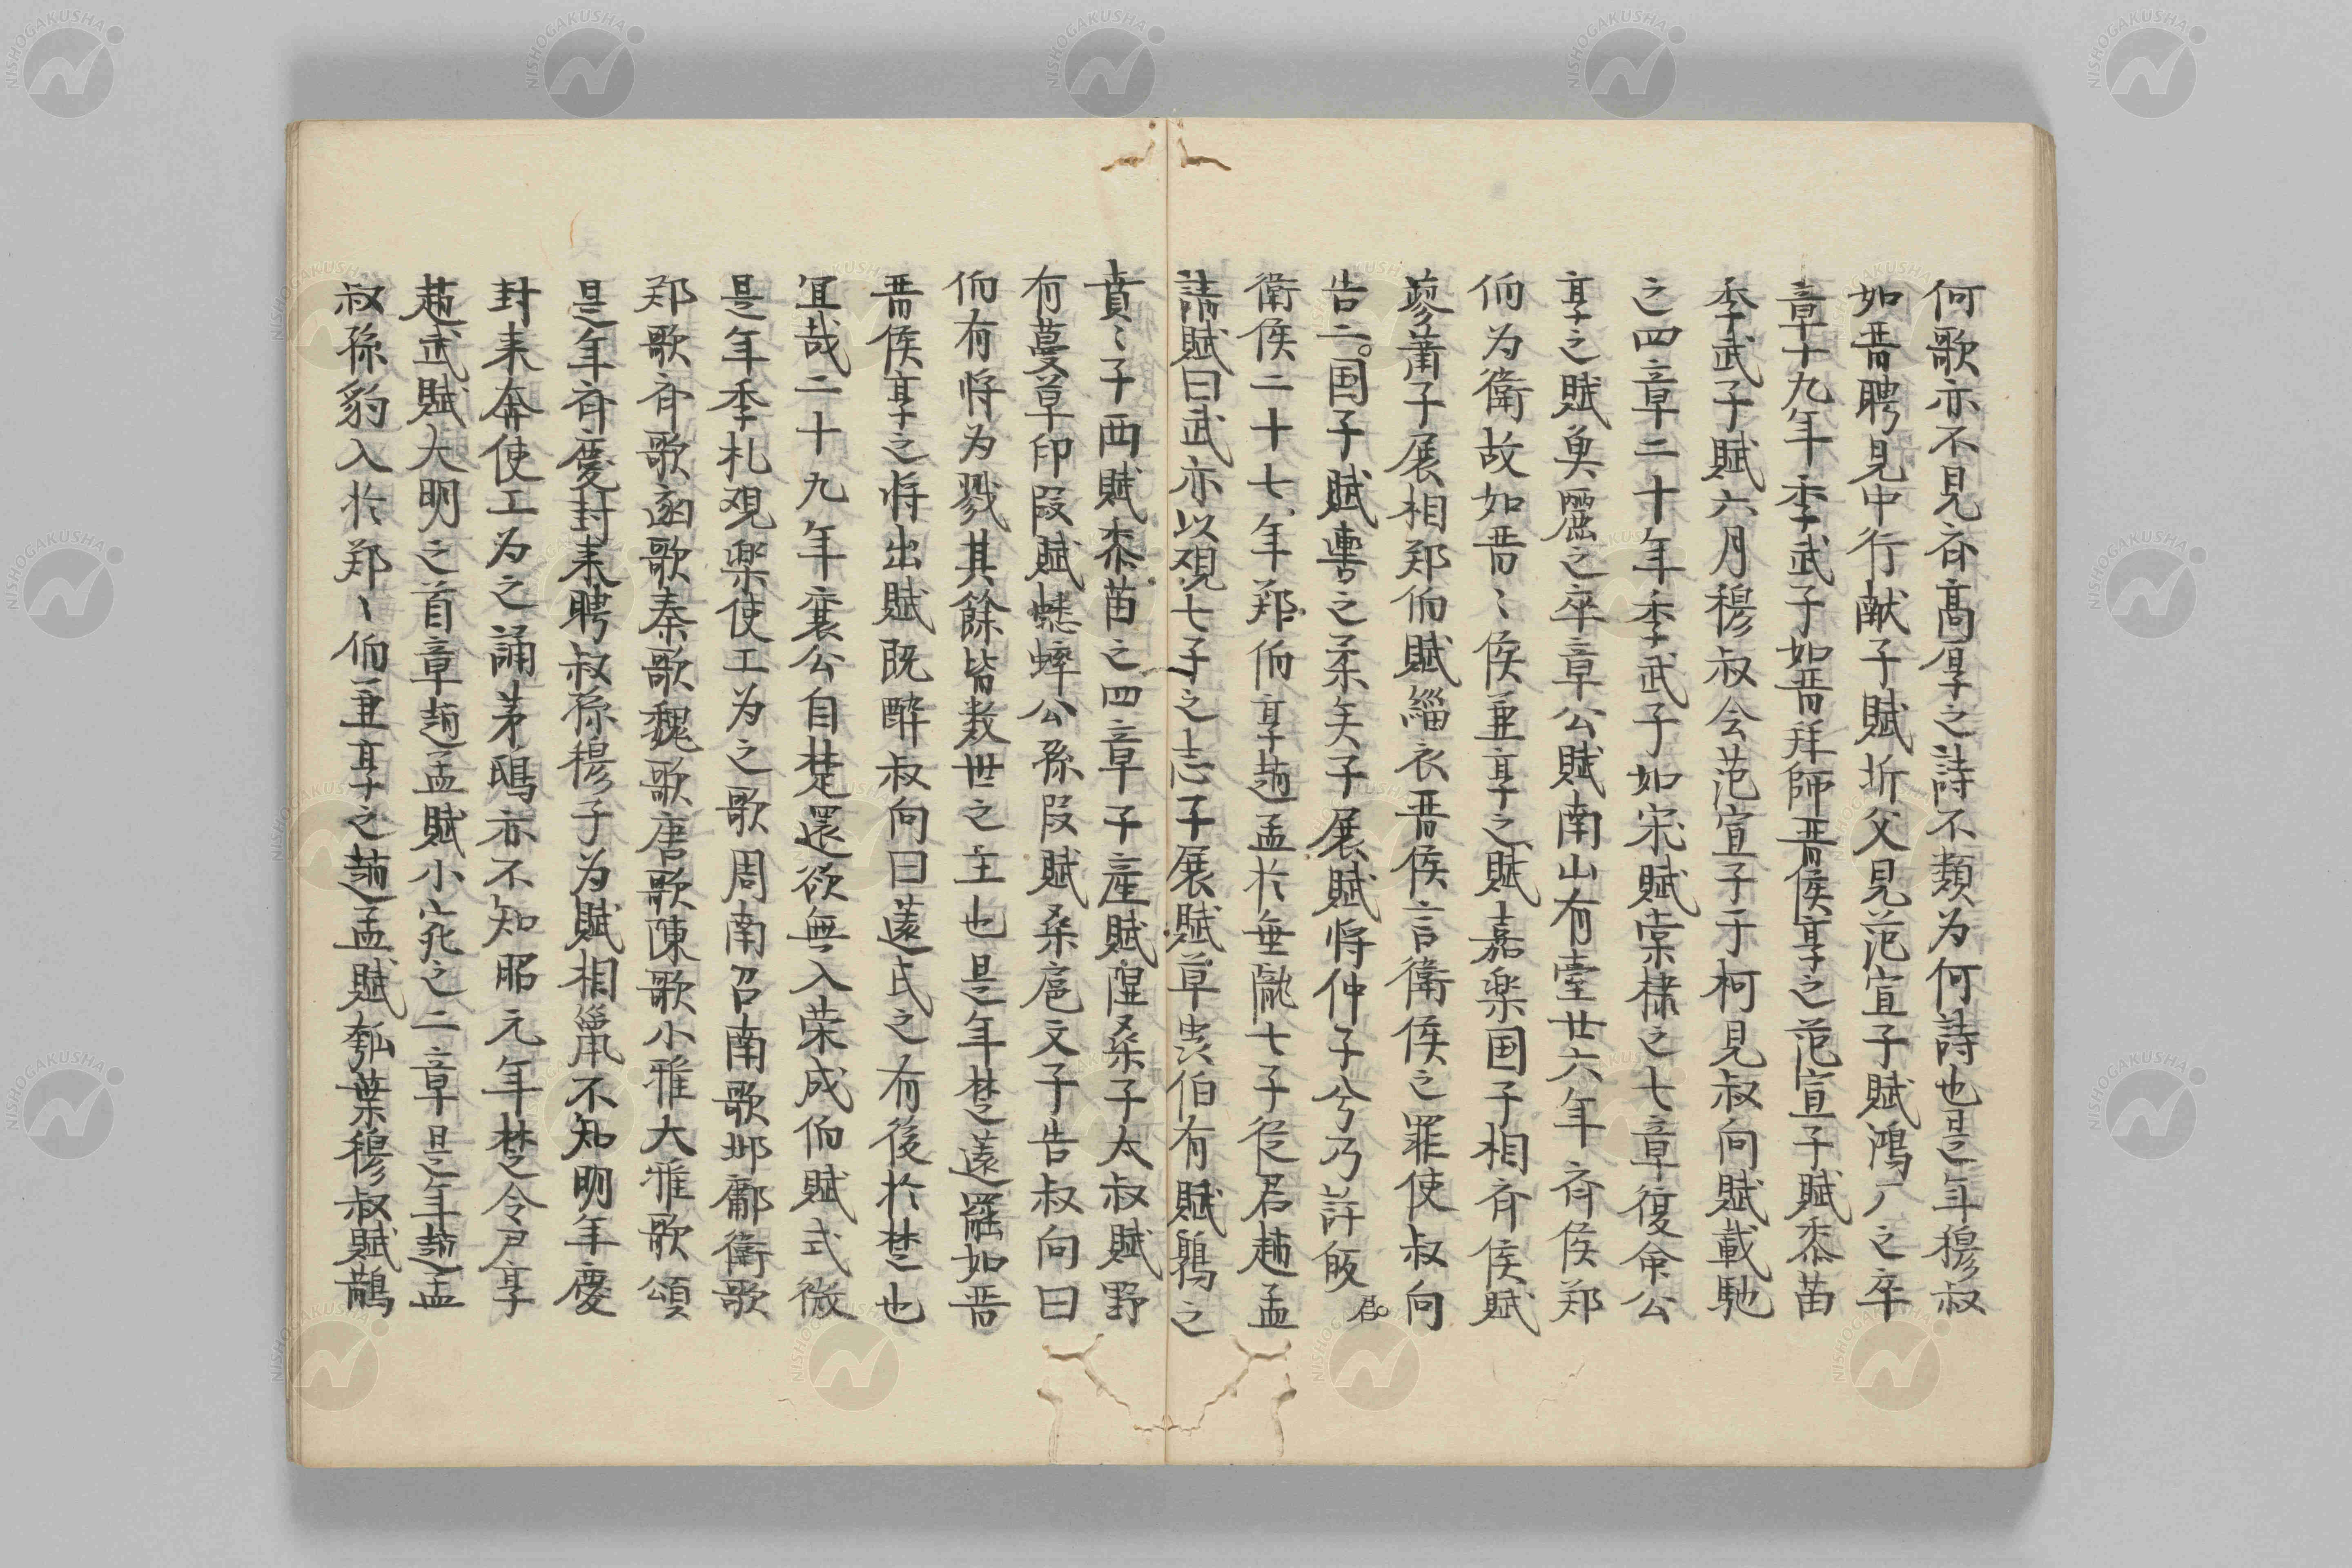 何歌亦不見斉高厚之詩不類为何詩也是年穆叔
如晋聘見中行献子賦圻父見范宣子賦鴻厂之卒
章十九年季武子如晋拜師晋侯享之范宣子賦黍苗
季武子賦六月穆叔会范宣子于柯見叔向賦載馳
之四章二十年季武子如宋賦棠棣之七章復命公
享之賦魚麗之卒章公賦南山有臺廿六年斉侯郑
伯为衛故如晋〻侯兼享之賦嘉楽国子相斉侯賦
蓼蕭子展相郑伯賦緇衣晋侯言衛侯之罪使叔向
告二国子賦轡之柔矣子展賦将仲子兮乃許皈
君
衛侯二十七年郑伯享趙孟於垂隴七子従君趙孟
請賦曰武亦以観七子之志子展賦草虫伯有賦鶉之
賁〻子西賦黍苗之四章子産賦隰桑子太叔賦野
有蔓草印段賦蟋蟀公孫段賦桑扈文子告叔向曰
伯有将为戮其餘皆数世之主也是年楚薳罷如晋
晋侯享之将出賦既酔叔向曰薳氏之有後於楚也
宜哉二十九年襄公自楚還欲無入栄成伯賦式微
是年季札观楽使工为之歌周南召南歌邶鄘衛歌
郑歌斉歌豳歌秦歌魏歌唐歌陳歌小雅大雅歌頌
是年斉慶封来聘叔孫穆子为賦相鼠不知明年慶
封来奔使工为之誦茅鴟亦不知昭元年楚令尹享
趙武賦大明之首章趙孟賦小宛之二章是年趙孟
叔孫豹入於郑〻伯兼享之趙孟賦瓠葉穆叔賦鵲